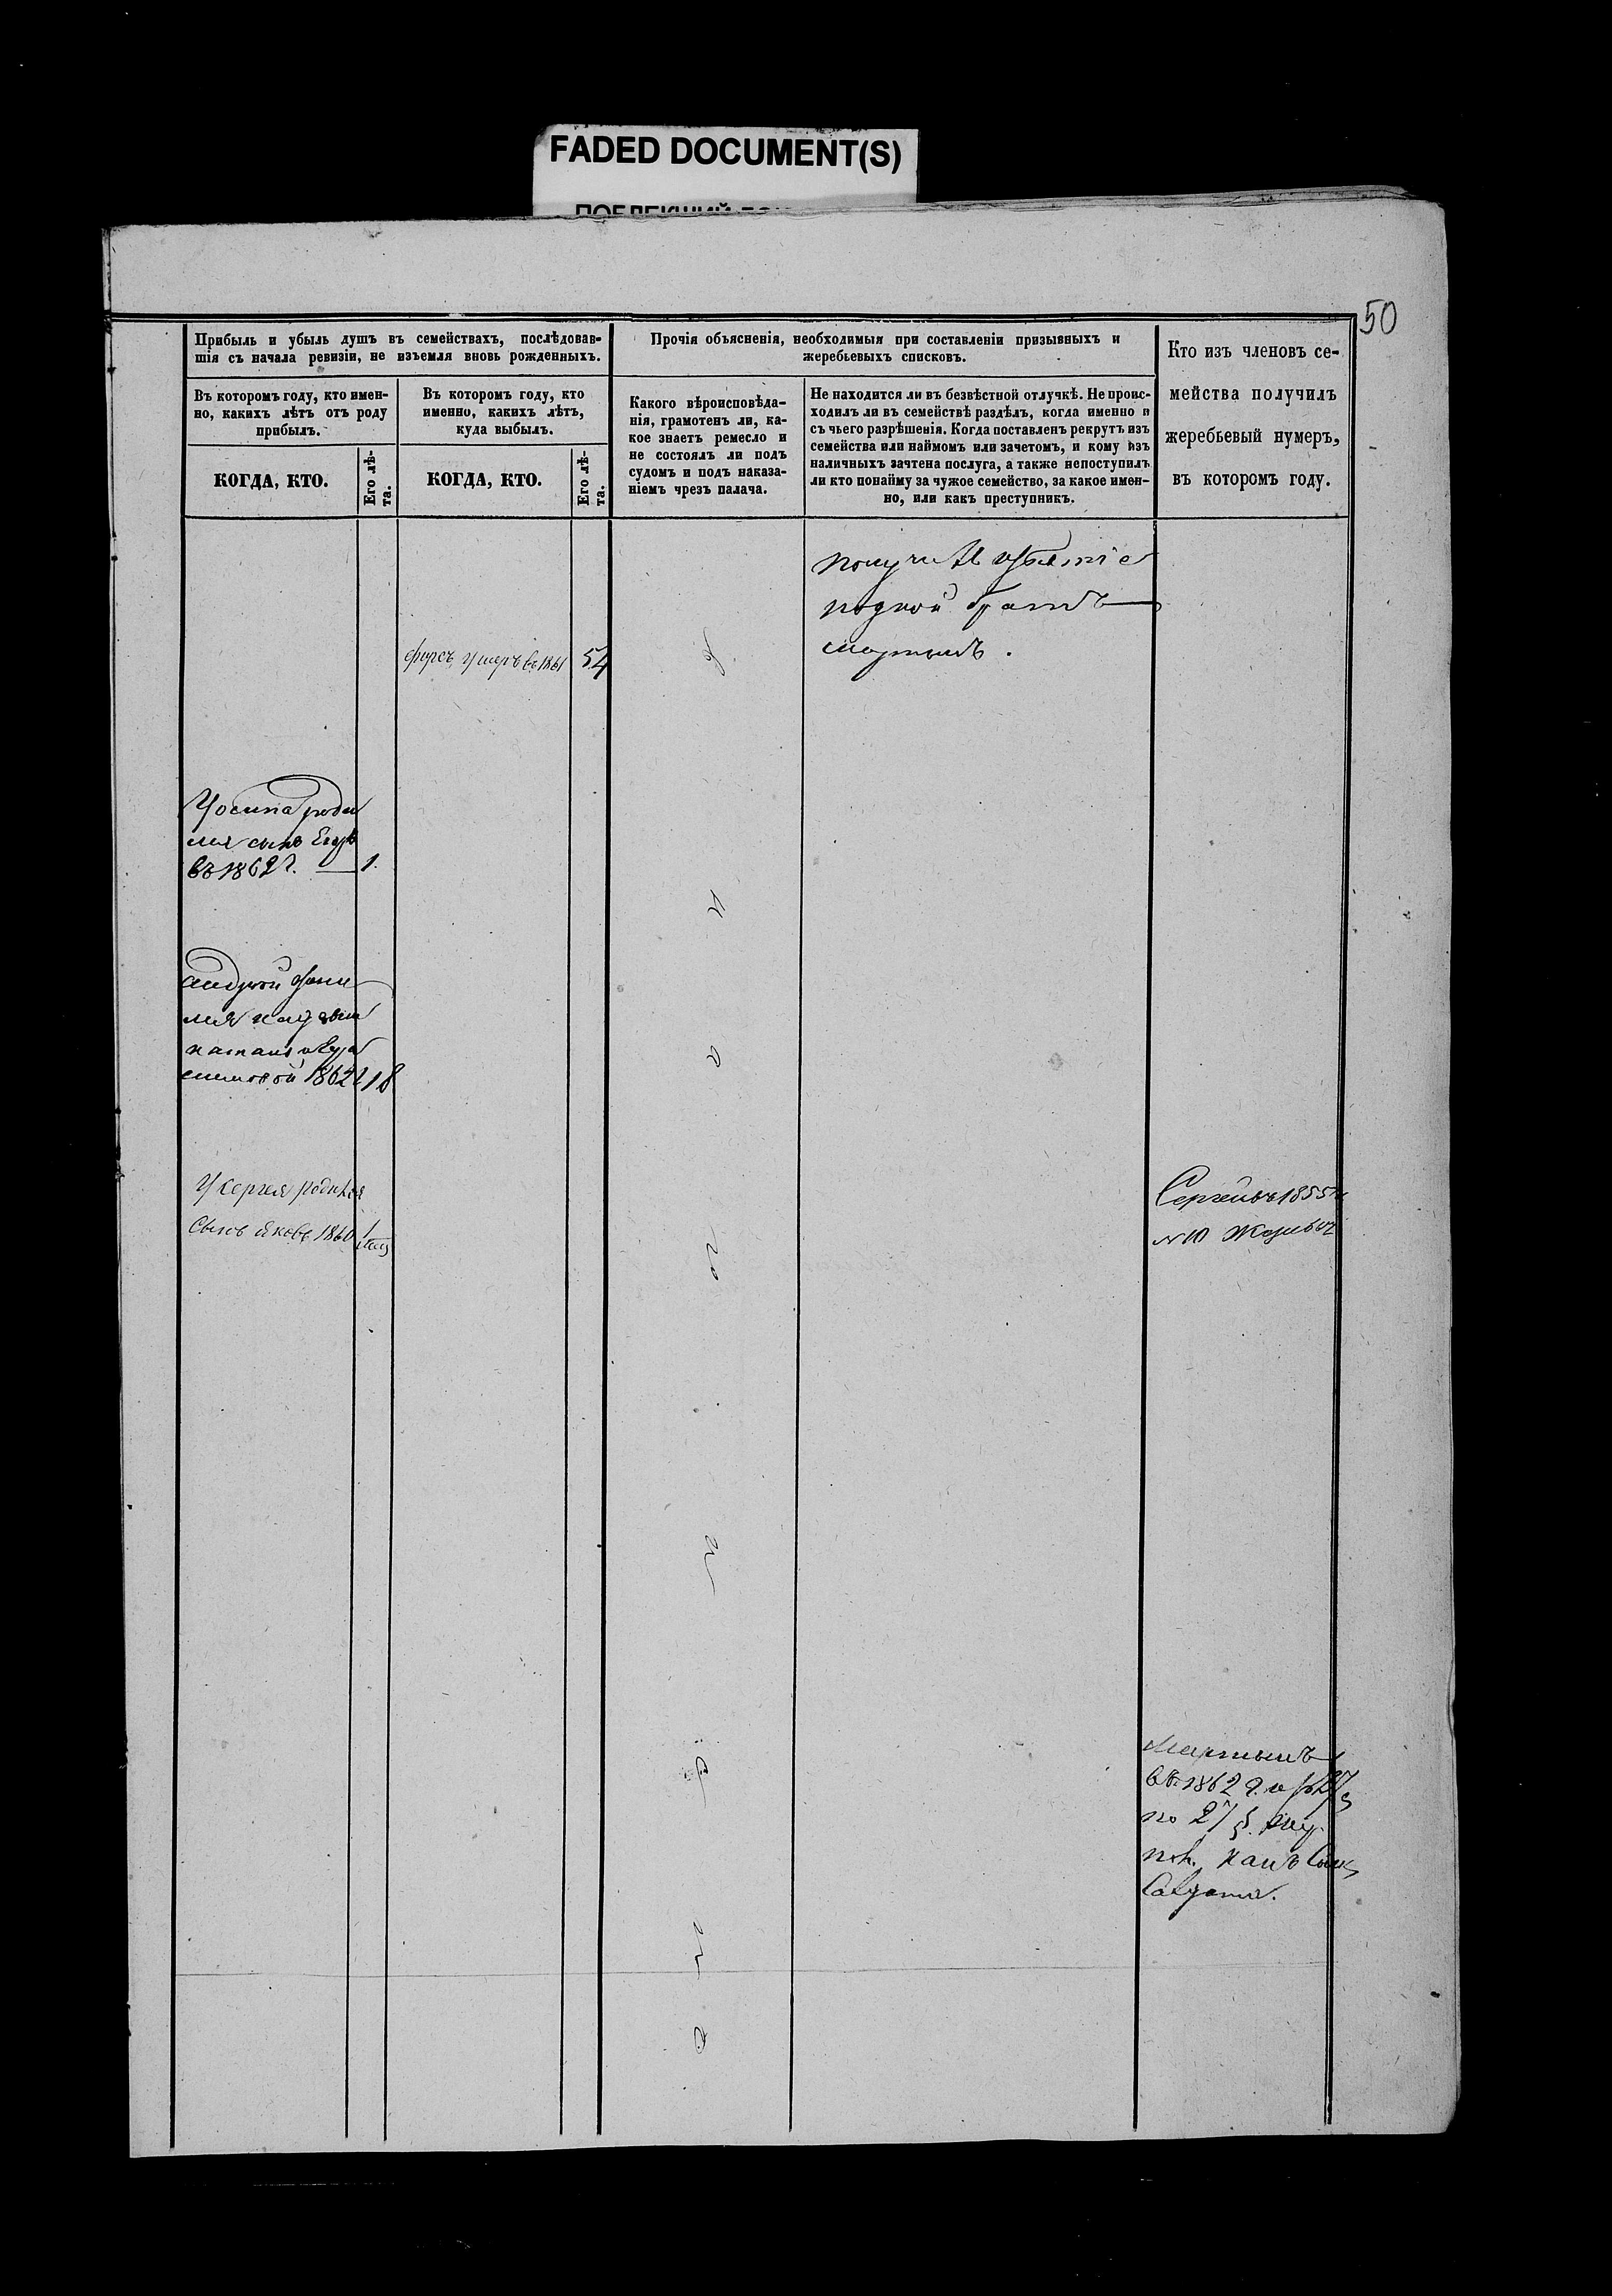 FADED DOCUMENT(S)
50
Прибыль и убыль душъ въ семействахъ, послѣдовав-
шія съ начала ревизіи, не изъемля вновь рожденныхъ.
Въ которомъ году, кто имен-
но, какихъ лѣтъ отъ роду
прибылъ.
КОГДА, КТО.
Его лѣ-
та.
Въ которомъ году, кто
именно, какихъ лѣтъ,
куда выбылъ.
КОГДА, КТО.
Его лѣ-
та.
Прочія объясненія, необходимыя при составленіи призывныхъ и
жеребьевыхъ списковъ.
Какого вѣроисповѣда-
нія, грамотенъ ли, ка-
кое знаетъ ремесло и
не состоялъ ли подъ
судомъ и подъ наказа-
ніемъ чрезъ палача.
Не находится ли въ безвѣстной отлучкѣ. Не проис-
ходилъ ли въ семействѣ раздѣлъ, когда именно и
съ чьего разрѣшенія. Когда поставленъ рекрутъ изъ
семейства или наймомъ или зачетомъ, и кому изъ
наличныхъ зачтена послуга, а также непоступилъ
ли кто понайму за чужое семейство, за какое имен-
но, или какъ преступникъ.
Кто изъ членовъ се-
мейства получилъ
жеребьевый нумеръ,
въ которомъ году.
братъ
мартынъ.
умеръ въ 1861 54
Уосипа роди
лся сынъ Егоръ
въ 1862 г. 1.
андрей
1862 18
У Сергея родился
Сынъ яковъ 1860 1
Сергей въ 1855
№ 10 Жеребья
Мартынъ
въ 1862 г.
по 27 §.